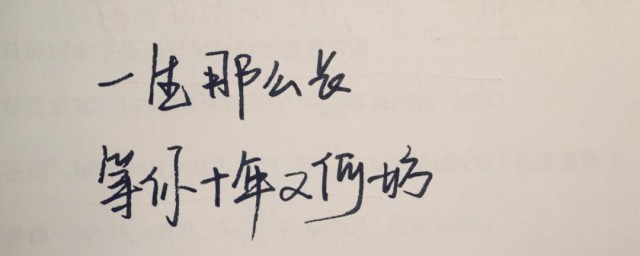 一生那么长
等你十年又何妨